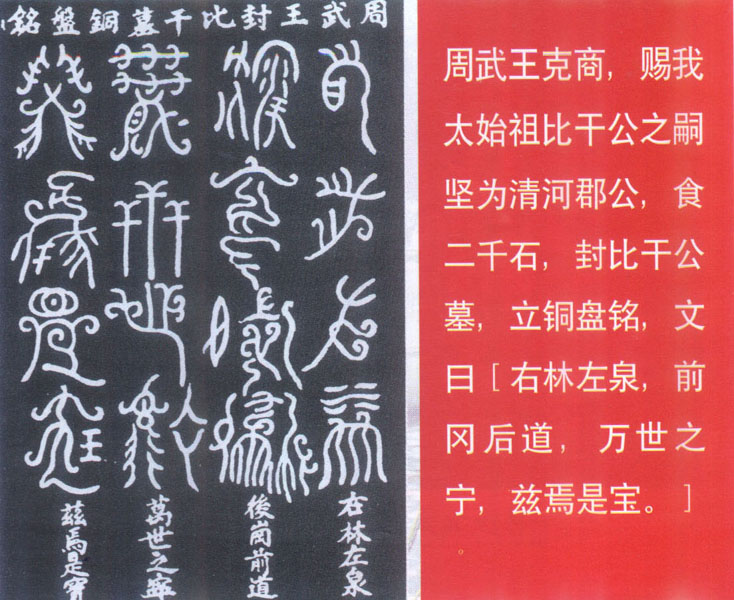 周武王封比干墓銅盤銘
右林左泉
後崗前道
萬世之寧
兹焉是寶
周武王克商，赐我
太始祖比干公之嗣
坚为清河郡公，食
二千石，封比干公
墓，立铜盘铭，文
曰［右林左泉，前
冈后道，万世之
宁，兹焉是宝。］